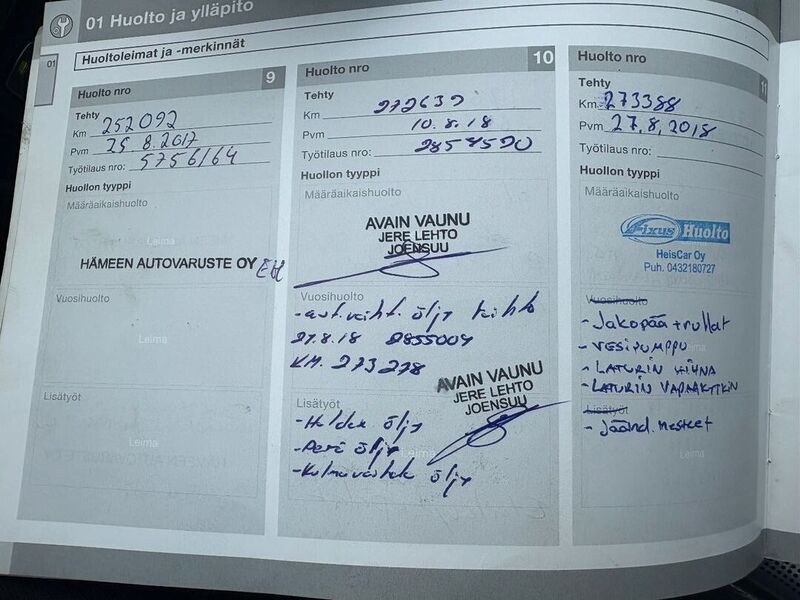 01 Huolto ja ylläpito
01
Huoltoleimat ja -merkinnät
Huolto nro 9
Tehty
Km 252092
Pvm 25.8.2017
Työtilaus nro: 5756164
Huollon tyyppi
Määräaikaishuolto
Leima
HÄMEEN AUTOVARUSTE OY
Vuosihuolto
Leima
Lisätyöt
Leima
Huolto nro 10
Tehty
Km 272632
Pvm 10.8.18
Työtilaus nro: 2854520
Huollon tyyppi
Määräaikaishuolto
AVAIN VAUNU
JERE LEHTO
JOENSUU
Vuosihuolto
- aut.vaiht. öljy
27.8.18 2855004
KM. 273278
AVAIN VAUNU
JERE LEHTO
JOENSUU
Lisätyöt
- Haldex öljy
- Perä öljy
- Kulmavaihde öljy
Huolto nro 11
Tehty
Km 273388
Pvm 27.8.2018
Työtilaus nro:
Huollon tyyppi
Määräaikaishuolto
Fixus Huolto
HeisCar Oy
Puh. 0432180727
Vuosihuolto
- Jakopää + rullat
- VESIPUMPPU
- LATURIN HIHNA
- LATURIN VAPAAKYTKIN
Lisätyöt
- Jäähd. nesteet
Leima